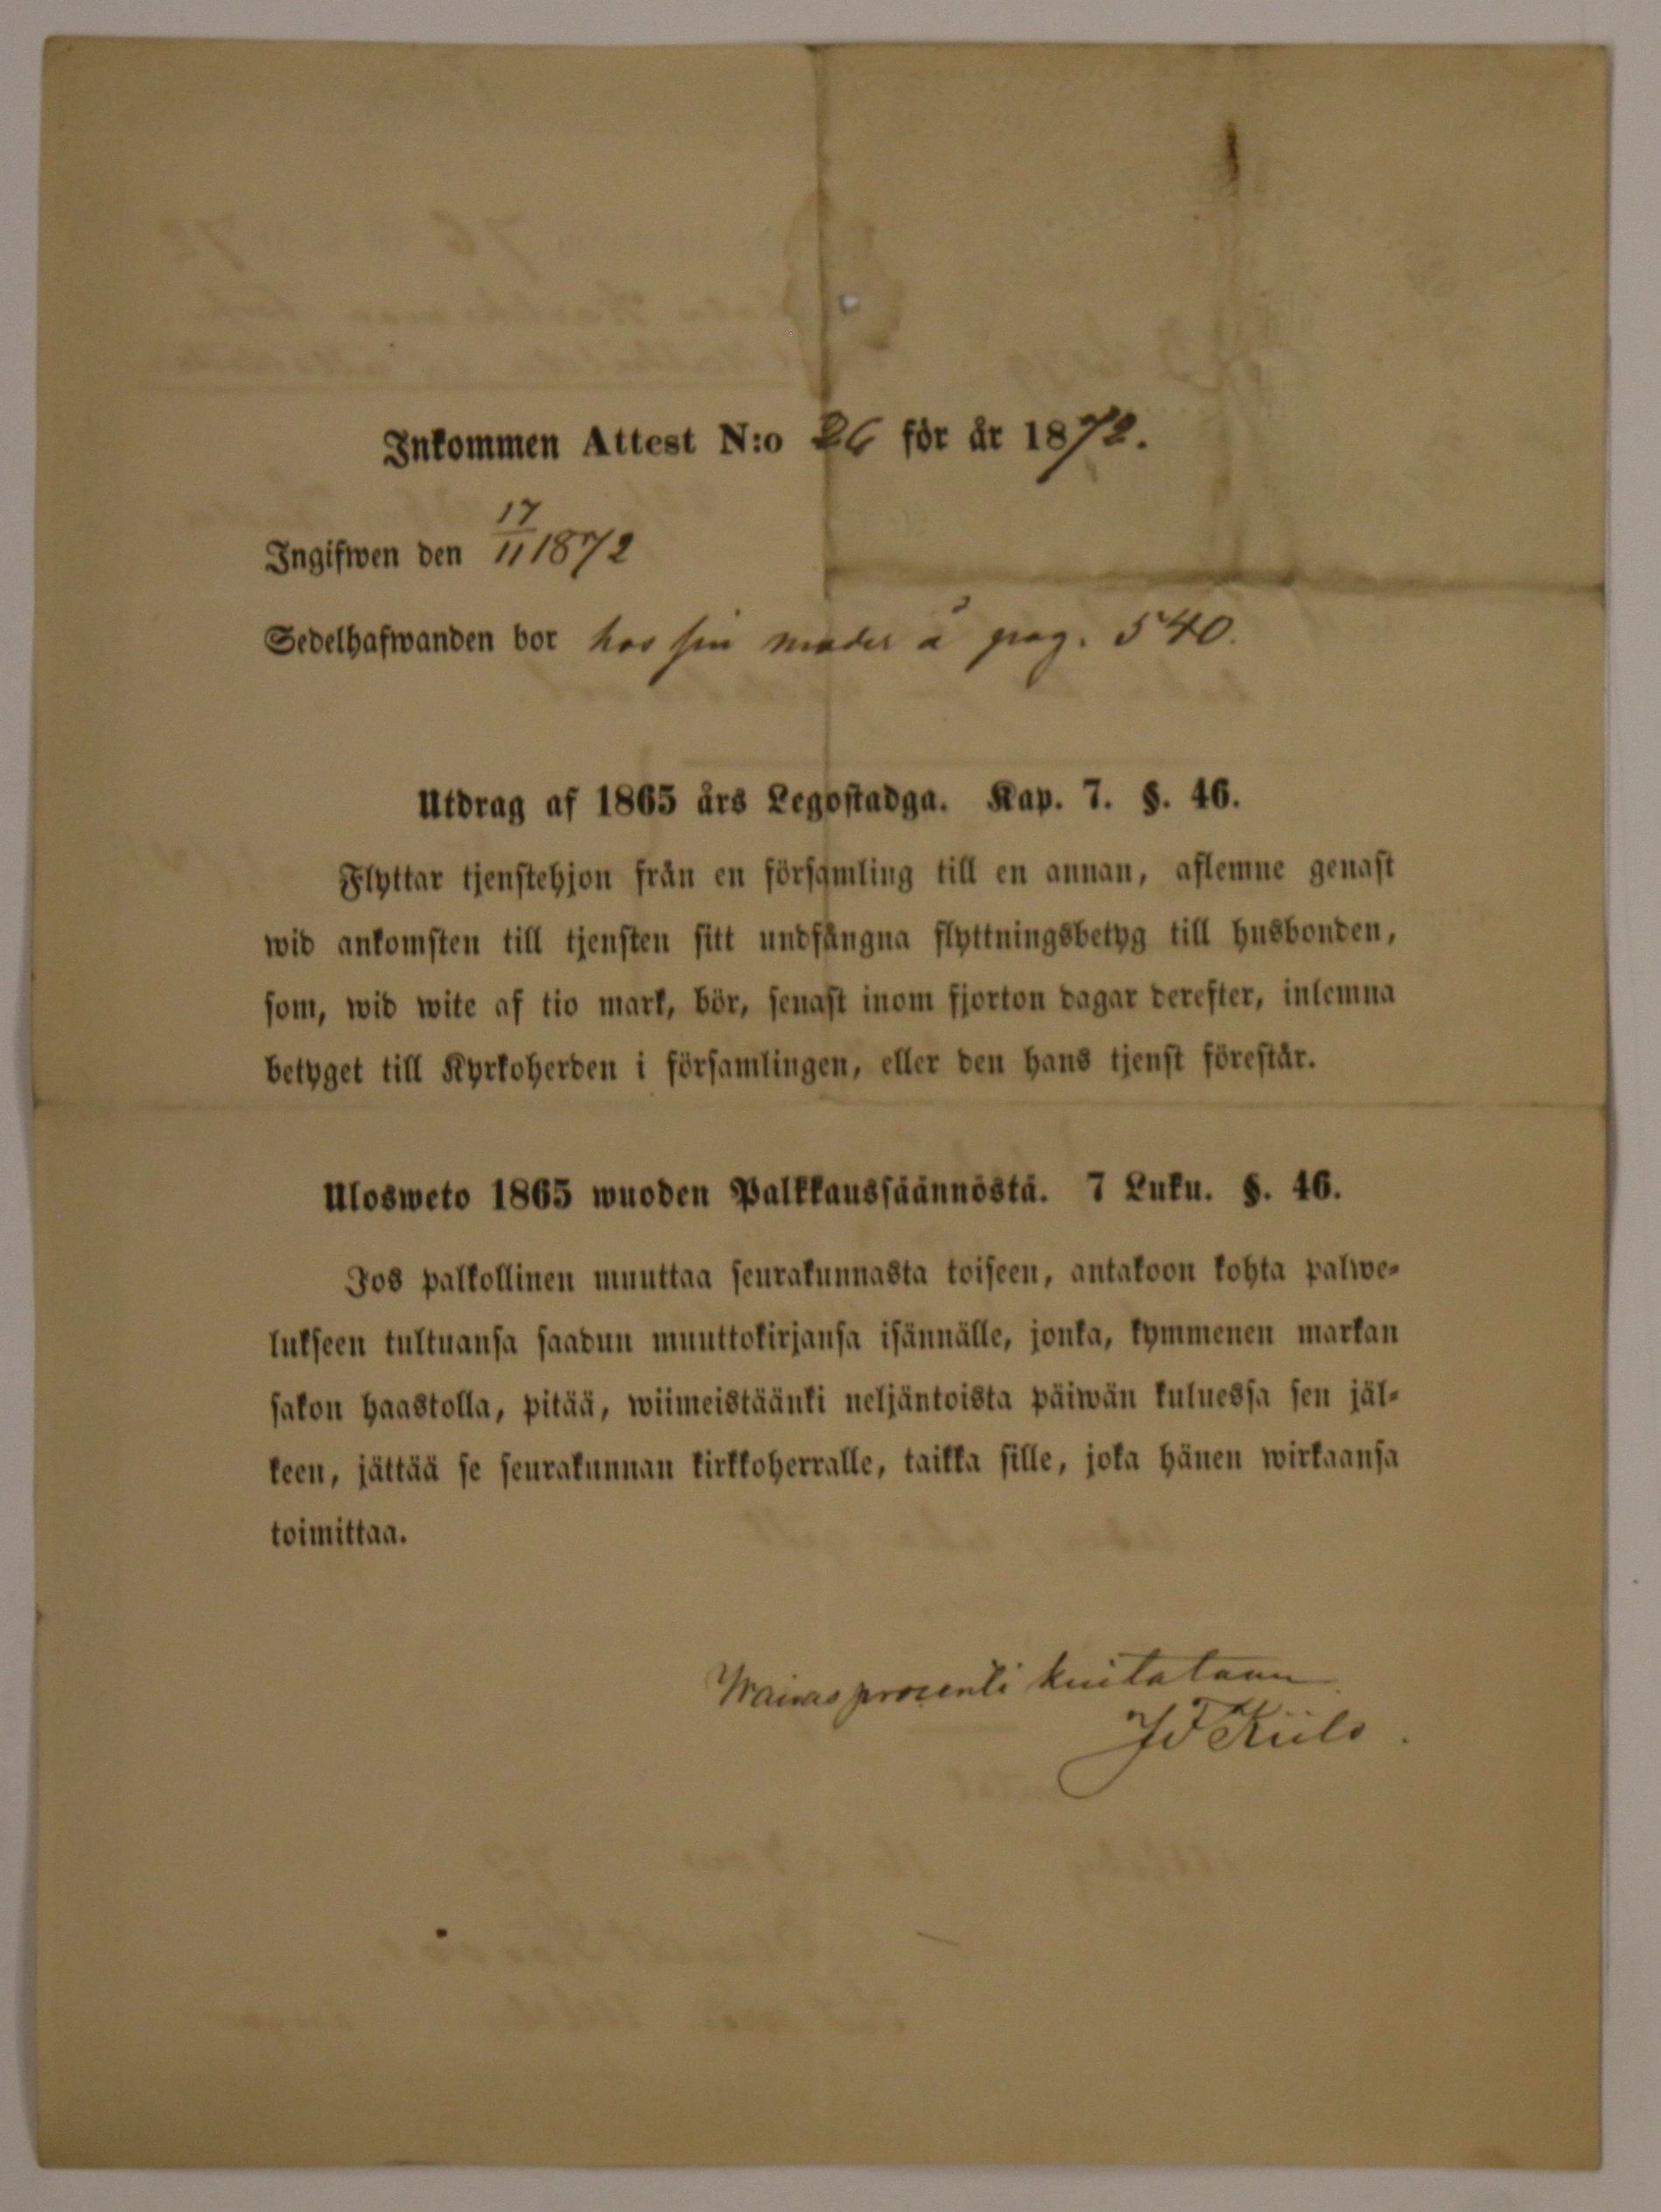 Inkommen Attest N:o 26 för år 1872.
Ingifwen den 17/11 1872
Sedelhafwanden bor hos sin moder å pag. 540.
Utdrag af 1865 års Legostadga. Kap. 7. §. 46.
Flyttar tjenstehjon från en församling till en annan, aflemne genast
wid ankomsten till tjensten sitt undfångna flyttningsbetyg till husbonden,
som, wid wite af tio mark, bör, senast inom fjorton dagar derefter, inlemna
betyget till Kyrkoherden i församlingen, eller den hans tjenst förestår.
Ulosweto 1865 wuoden Palkkaussäännöstä. 7 Luku. §. 46.
Jos palkollinen muuttaa seurakunnasta toiseen, antakoon kohta palwe-
lukseen tultuansa saadun muuttokirjansa isännälle, jonka, kymmenen markan
sakon haastolla, pitää, wiimeistäänki neljäntoista päiwän kuluessa sen jäl-
keen, jättää se seurakunnan kirkkoherralle, taikka sille, joka hänen wirkaansa
toimittaa.
Waivasprosenti kuitataan
J F Kiilo.